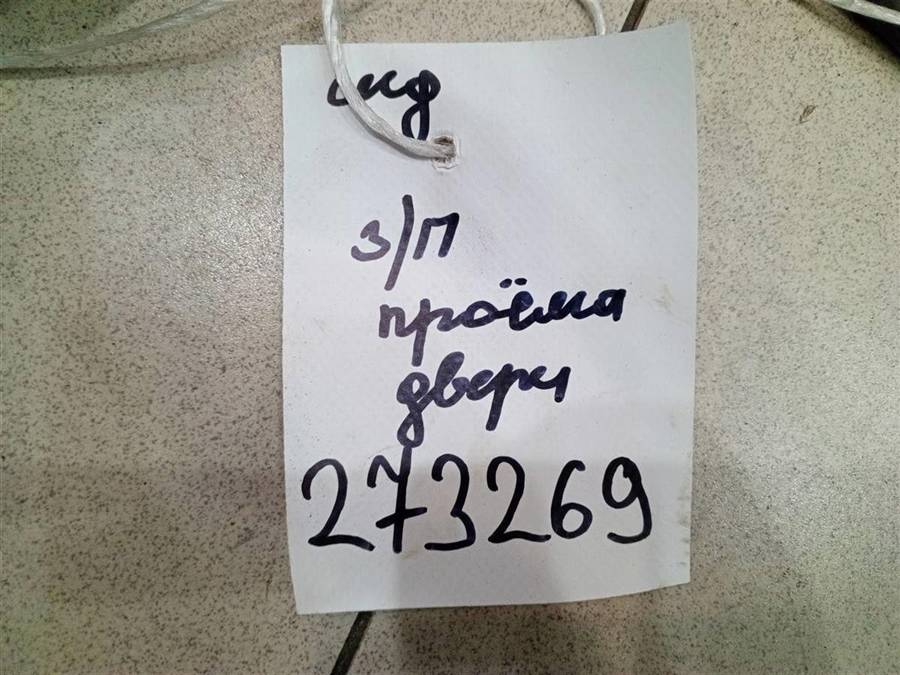 з/п
проёма
двери
273269